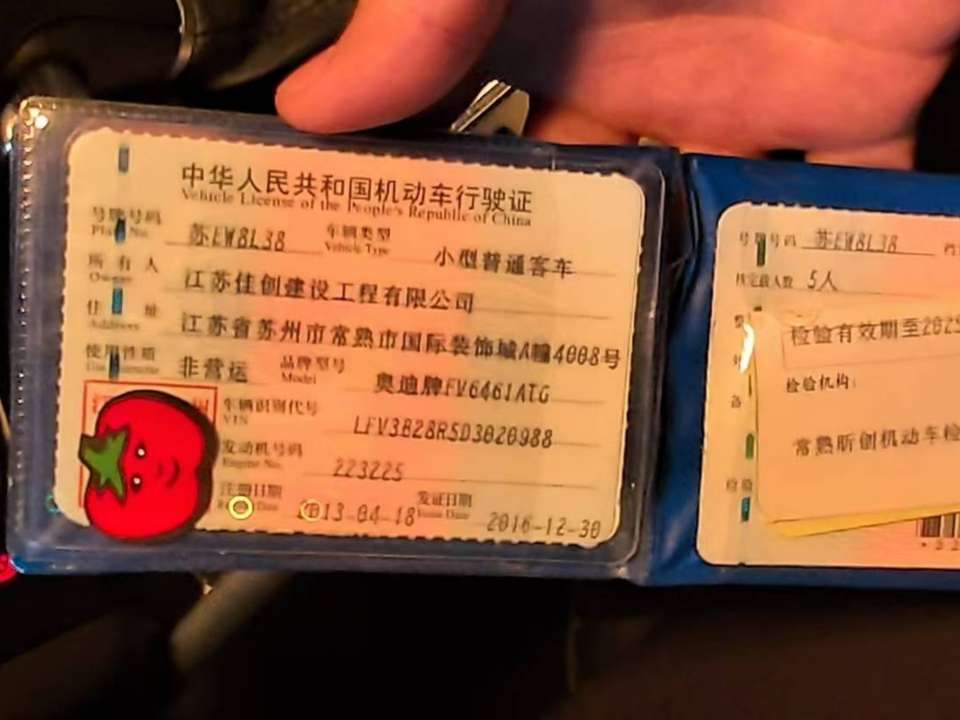 中华人民共和国机动车行驶证
Vehicle License of the People's Republic of China
号牌号码 苏EW8L38 车辆类型 小型普通客车
Plate No. Vehicle Type
所有人 江苏佳创建设工程有限公司
Owner
住址 江苏省苏州市常熟市国际装饰城A幢4008号
Address
使用性质 非营运 品牌型号 奥迪牌FV6461ATG
Model
车辆识别代号 LFV3B28R5D3020988
VIN
发动机号码 223225
Engine No.
注册日期 2013-04-18 发证日期 2016-12-30
Issue Date
号牌号码 苏EW8L38
核定载人数 5人
检验有效期至2025
检验机构:
备
常熟昕创机动车检
检验